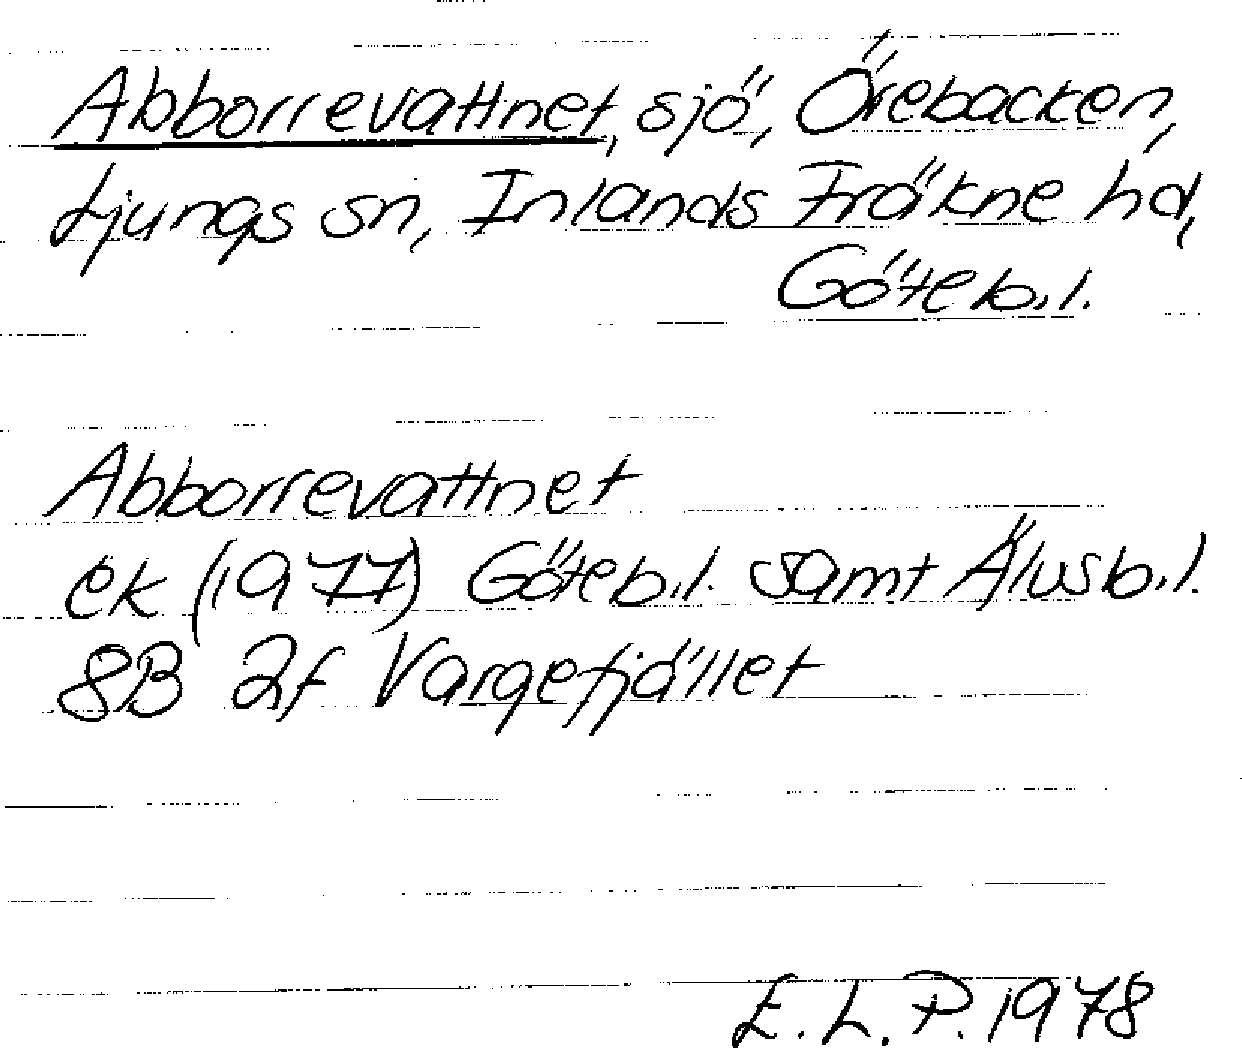 Abborrevattnet, sjö, Örebacken,
Ljungs sn, Inlands Fräkne hd,
Göteb.l.
Abborrevattnet
ek (1977) Göteb.l. samt Älvsb.l.
8B 2f Vargefjället
E.L.P. 1978